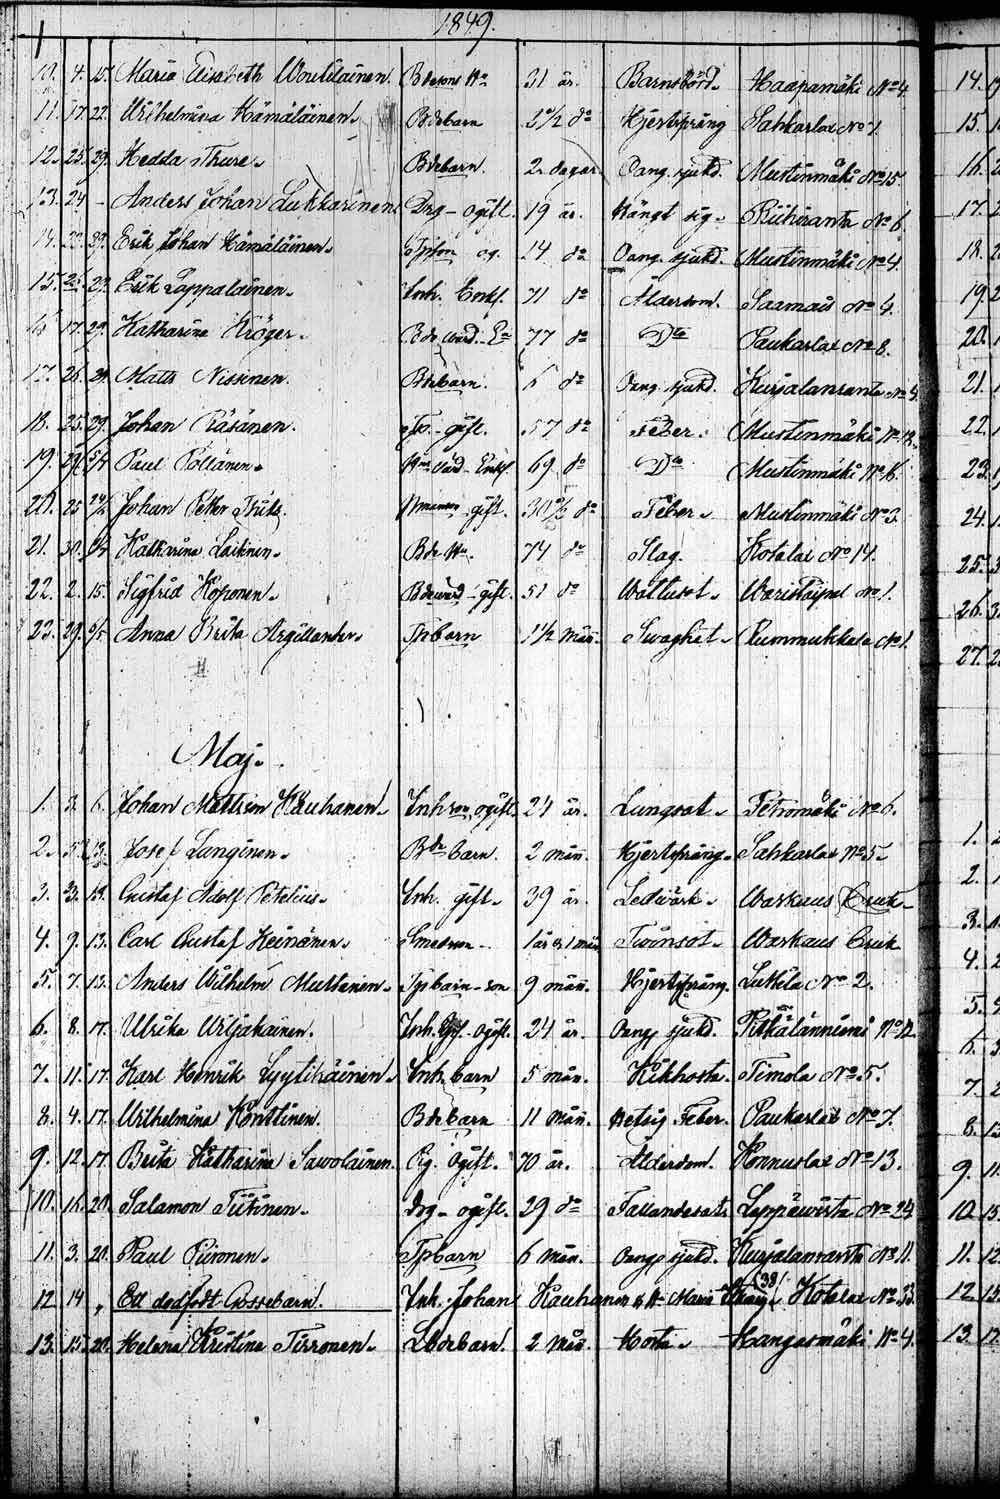 1849.
10. 4. 15. Maria Elisabeth Woutilainen. Bdesons Ha 31 år. Barnsbörd. Haapamäki No 4.
11. 17. 22. Wilhelmina Hämäläinen. Bdebarn do Hjertsprång Sahkarlax No 7.
12. 25. 29. Hedda Thure. Bdebarn. 2 dagar. Oang. sjukd. Mustinmäki No 15.
13. 24 - Anders Johan Lukkarinen Drg - ogift. 19 år. Hängt sig. Riihiranta No 6.
14. 23. 29. Erik Johan Hämäläinen. og. 14 do Oang. sjukd. Mustinmäki No 4.
15. 26. 29. Erik Lappalainen. Inh. Enkl. 71 do Ålderdom. Saamais No 4.
16 17. 29. Katharina Kröger. 77 do Do Paukarlax No 8.
17. 26. 29. Matts Nissinen. Bdebarn. 6 do Oang. sjukd. Kurjalanranta No 4.
18. 25. 29. Johan Räsänen. Tp. - gift. 57 do Feber. Mustinmäki
19. 29. Paul Pöllänen. Enkl. 69 do Do Mustinmäki No 16.
20. 25 Johan Petter gift. do Feber. Mustinmäki No 3.
21. 30. Katharina Laitinen. Bde 74 do Slag. Kotalax No 14.
22. 2. 15. Sigfrid Koponen. gift. 51 do Wattusot. Waristaipal No 1.
23. 29. 6/5 Anna Brita Argillander. Tpbarn 1 1/2 mån. Swaghet. Rummukkala No 1.
Maj.
1. 3. 6. Johan Mattson Kauhanen. Inhson, ogift. 24 år. Lungsot. Petromäki No 6.
2. 5. 13. Josef Langinen. Bde barn. 2 mån. Hjertsprång. Sahkarlax No 5.
3. 3. 13. Gustaf Adolf Petelius. Inh. gift. 39 år. Ledwärk. Warkaus Bruk
4. 9. 13. Carl Gustaf Heinänen. Smedson. 1 år & 1 mån Twinsot. Warkaus Bruk
5. 7. 13. Anders Wilhelm Muttanen. Tpbarn-son 9 mån. Hjertsprång. Luttila No 2.
6. 8. 17. Ulrika Wiljakainen. Inh. ogift. 24 år. Oang. sjukd. Pitkälänniemi No 12.
7. 11. 17. Karl Henrik Lyytikäinen. Inh. barn 5 mån. Kikhosta. Timola No 5.
8. 4. 17. Wilhelmina Konttinen. Bdebarn 11 mån. Hetsig Feber. Paukarlax No 7.
9. 12. 17. Brita Katharina Sawolainen. Pig. ogift. 70 år. Ålderdom. Konnuslax No 13.
10. 16. 20. Salamon Tiitinen. Drg - ogift. 29 do Fallandesot. Leppäwirta No 24
11. 3. 20. Paul Piironen. Tpbarn 6 mån. Oang. sjukd. Kurjalanranta No 11.
12. 14 " Ett dödfödt Gossebarn. Inh. Johan Kauhanen & H. Maria (38) Kotalax No 33.
13. 15. 20. Helena Kristina Tirronen. Lbdebarn. 2 mån. Hosta. Hangasmäki No 4.
14.
15.
16.
17.
18.
19
20.
21.
22.
23.
24.
25.
26.
27.
1.
2.
3.
4.
5.
6.
7.
8.
9.
10.
11.
12.
13.